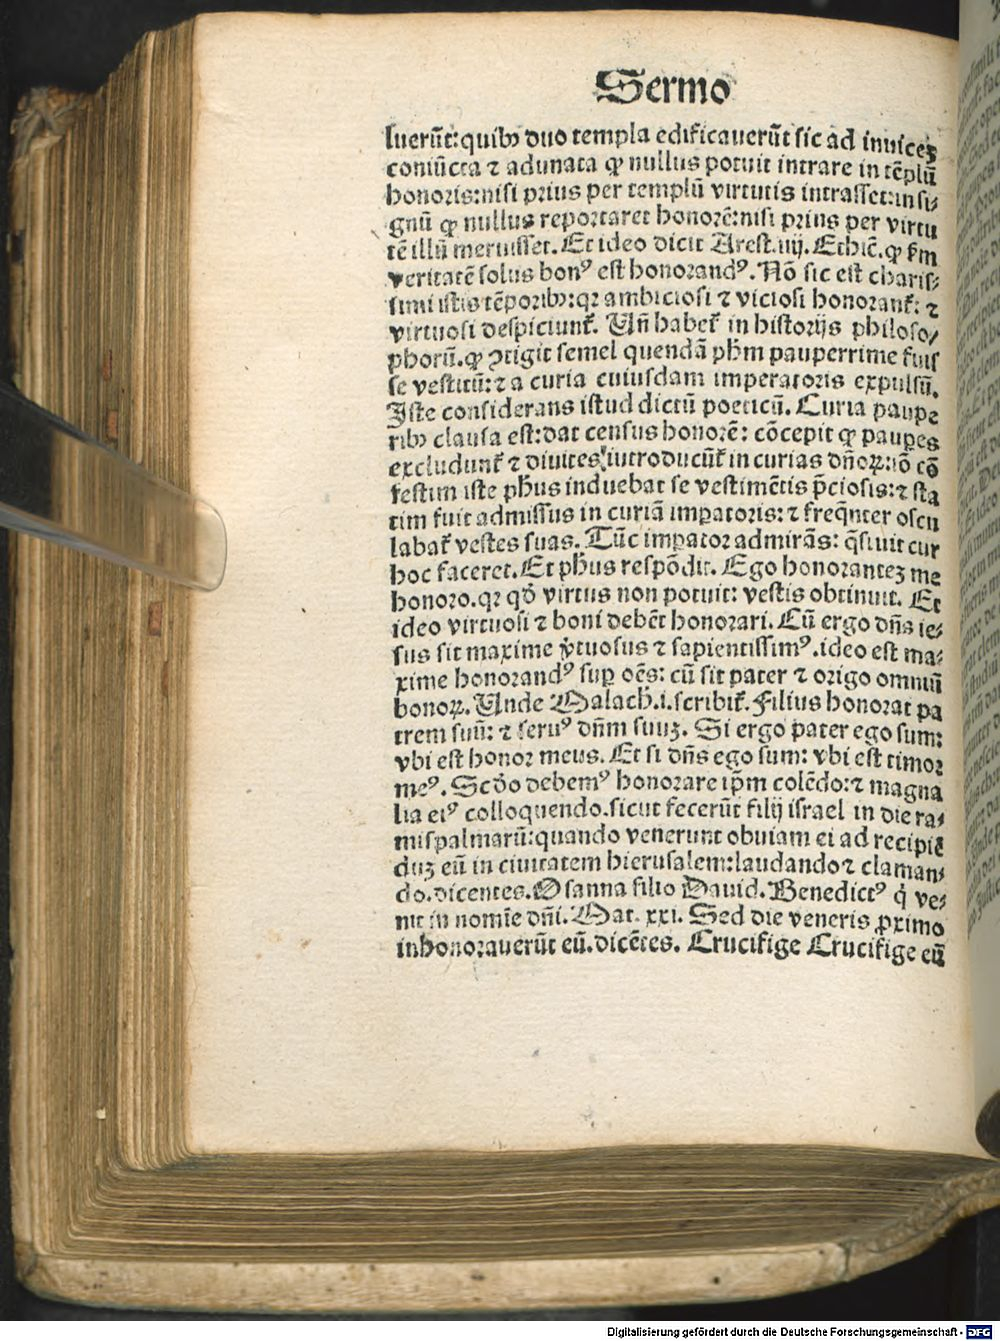 Sermo
luerūt: quibꝫ duo templa edificauerūt sic ad inuiceꝫ
coniūcta ⁊ adunata ꝙ nullus potuit intrare in tēplū
honoris: nisi prius per templū virtutis intrasset: in si⸗
gnū ꝙ nullus reportaret honorē: nisi prius per virtu
tē illū meruisset. Et ideo dicit Arest. iiij. Ethic̄. ꝙ fm
veritatē solus bonꝰ est honorandꝰ. Nō sic est charis⸗
simi istis tēporibꝫ: qꝛ ambiciosi ⁊ viciosi honorant̄: ⁊
virtuosi despiciunt̄. Uñ habet̄ in historijs philoso⸗
phorū. ꝙ ꝯtigit semel quendā ph̄m pauperrime fuis
se vestitū: ⁊ a curia cuiusdam imperatoris expulsū.
Iste considerans istud dictū poeticū. Curia paupe
ribꝫ clausa est: dat census honorē: cōcepit ꝙ pauꝑes
excludunt̄ ⁊ diuites introducūt̄ in curias dñoꝝ: iō cō
festim iste ph̄us induebat se vestimētis p̄ciosis: ⁊ sta
tim fuit admissus in curiā imꝑatoris: ⁊ freq̄nter oscu
labat̄ vestes suas. Tūc imꝑator admirās: q̄siuit cur
hoc faceret. Et ph̄us respōdit. Ego honoranteꝫ me
honoro. qꝛ qđ virtus non potuit: vestis obtinuit. Et
ideo virtuosi ⁊ boni debēt honorari. Cū ergo dñs ie⸗
sus sit maxime v̓tuosus ⁊ sapientissimꝰ. ideo est ma⸗
xime honorandꝰ suꝑ oēs: cū sit pater ⁊ origo omniū
bonoꝝ. Unde Malach̄. i. scribit̄. Filius honorat pa
trem suū: ⁊ seruꝰ dñm suuꝫ. Si ergo pater ego sum:
vbi est honor meus. Et si dñs ego sum: vbi est timor
meꝰ. Scđo debemꝰ honorare ip̄m colēdo: ⁊ magna
lia eiꝰ colloquendo. sicut fecerūt filij israel in die ra⸗
mispalmarū: quando venerunt obuiam ei ad recipiē
duꝫ eū in ciuitatem hierusalem: laudando ⁊ claman⸗
do. dicentes. Osanna filio Dauid. Benedictꝰ q̇ ve⸗
nit in nomīe dñi. Mat. xxi. Sed die veneris ꝓximo
inhonorauerūt eū. dicētes. Crucifige Crucifige eū
Digitalisierung gefördert durch die Deutsche Forschungsgemeinschaft - DFG